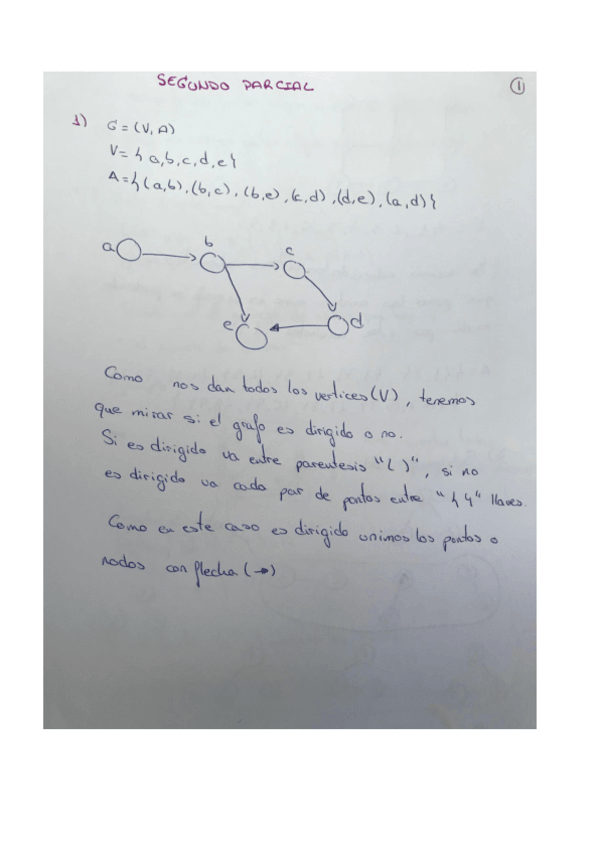 SEGUNDO PARCIAL
1
1) G = (V, A)
V = { a, b, c, d, e }
A = { (a, b), (b, c), (b, e), (c, d), (d, e), (a, d) }
a b c
e d
Como nos dan todos los vertices (V), tenemos
que mirar si el grafo es dirigido o no.
Si es dirigido va entre parentesis "( )", si no
es dirigido va cada par de puntos entre "{ }" llaves.
Como en este caso es dirigido unimos los puntos o
nodos con flecha (→)